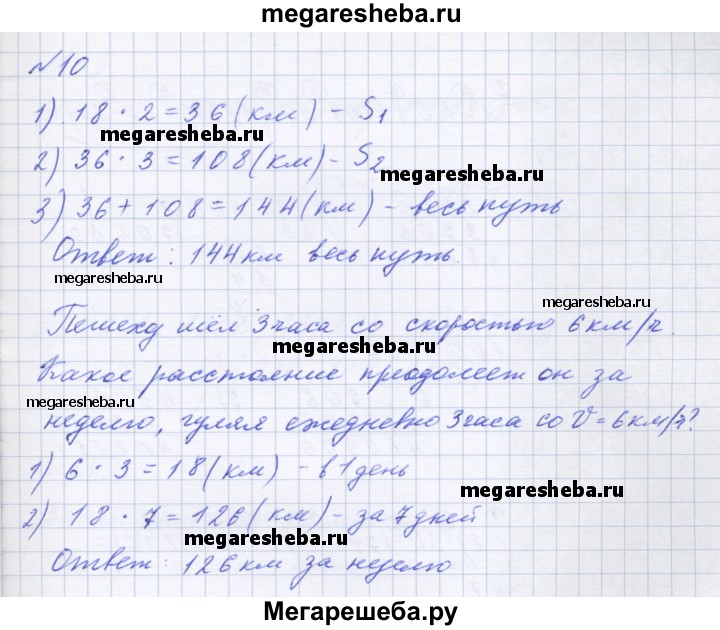 megaresheba.ru
№10
1) 18 · 2 = 36 (км) - S1
megaresheba.ru
2) 36 · 3 = 108 (км) - S2
megaresheba.ru
3) 36 + 108 = 144 (км) - весь путь
Ответ: 144 км весь путь.
megaresheba.ru
megaresheba.ru
Пешеход шёл 3 часа со скоростью 6 км/ч.
megaresheba.ru
Какое расстояние преодолеет он за
megaresheba.ru
неделю, гуляя ежедневно 3 часа со V = 6 км/ч?
1) 6 · 3 = 18 (км) - в 1 день
megaresheba.ru
2) 18 · 7 = 126 (км) - за 7 дней
megaresheba.ru
Ответ: 126 км за неделю
Мегарешеба.ру